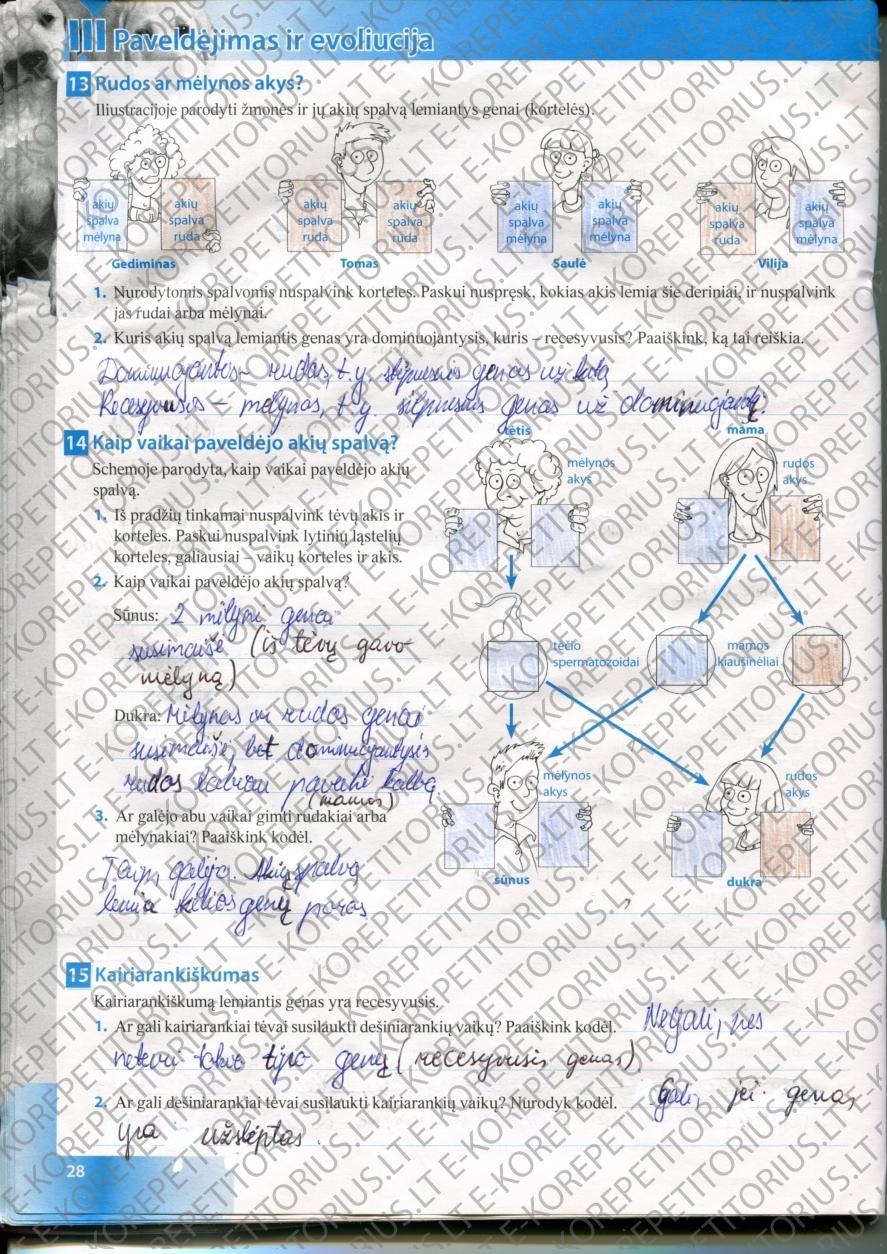 III Paveldėjimas ir evoliucija
13 Rudos ar mėlynos akys?
Iliustracijoje parodyti žmonės ir jų akių spalvą lemiantys genai (kortelės).
akių spalva mėlyna
akių spalva ruda
akių spalva ruda
akių spalva ruda
akių spalva mėlyna
akių spalva mėlyna
akių spalva ruda
akių spalva mėlyna
Gediminas Tomas Saulė Vilija
1. Nurodytomis spalvomis nuspalvink korteles. Paskui nuspręsk, kokias akis lemia šie deriniai, ir nuspalvink
jas rudai arba mėlynai.
2. Kuris akių spalvą lemiantis genas yra dominuojantysis, kuris – recesyvusis? Paaiškink, ką tai reiškia.
Dominuojantis – rudas, t.y. stipresnis genas už kitą
Recesyvusis – mėlynas, t.y. silpnesnis genas už dominuojantį.
14 Kaip vaikai paveldėjo akių spalvą?
Schemoje parodyta, kaip vaikai paveldėjo akių
spalvą.
1. Iš pradžių tinkamai nuspalvink tėvų akis ir
korteles. Paskui nuspalvink lytinių ląstelių
korteles, galiausiai – vaikų korteles ir akis.
2. Kaip vaikai paveldėjo akių spalvą?
Sūnus: 2 mėlyni genai
susimaišė (iš tėvų gavo
mėlyną)
Dukra: Mėlynas ir rudas genai
susimaišė, bet dominuojantysis
rudas labiau paveikė
(mamos)
3. Ar galėjo abu vaikai gimti rudakiai arba
mėlynakiai? Paaiškink kodėl.
Taip, galėjo. Akių spalvą
lemia kelios genų poros
tėtis
mėlynos
akys
mama
rudos
akys
tėčio
spermatozoidai
mamos
kiaušinėliai
mėlynos
akys
sūnus
rudos
akys
dukra
15 Kairiarankiškumas
Kairiarankiškumą lemiantis genas yra recesyvusis.
1. Ar gali kairiarankiai tėvai susilaukti dešiniarankių vaikų? Paaiškink kodėl. Negali, nes
neturi tokio tipo genų (recesyvusis genas)
2. Ar gali dešiniarankiai tėvai susilaukti kairiarankių vaikų? Nurodyk kodėl. Gali, jei genas
yra užslėptas.
28
E-KOREPETITORIUS.LT